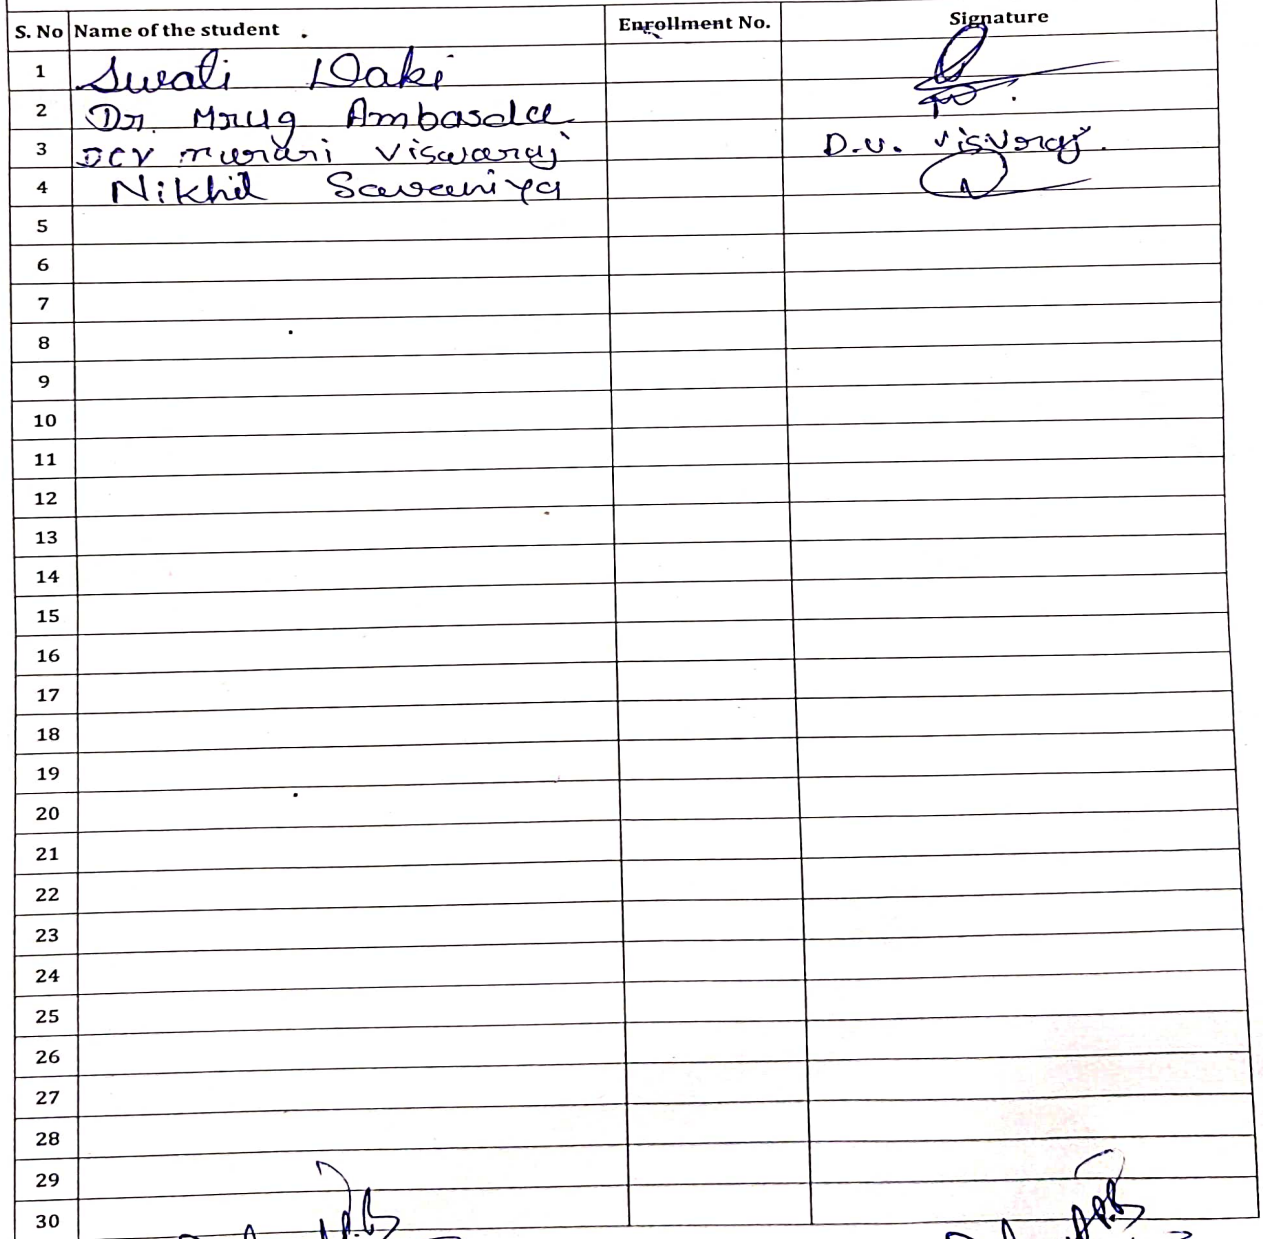 S. No Name of the student Enrollment No. Signature
1 Swati Daki
2 Dr. Mrug Ambasda
3 murari Viswaraj D.V. Visvaraj.
4 Nikhil Savaniya
5
6
7
8
9
10
11
12
13
14
15
16
17
18
19
20
21
22
23
24
25
26
27
28
29
30